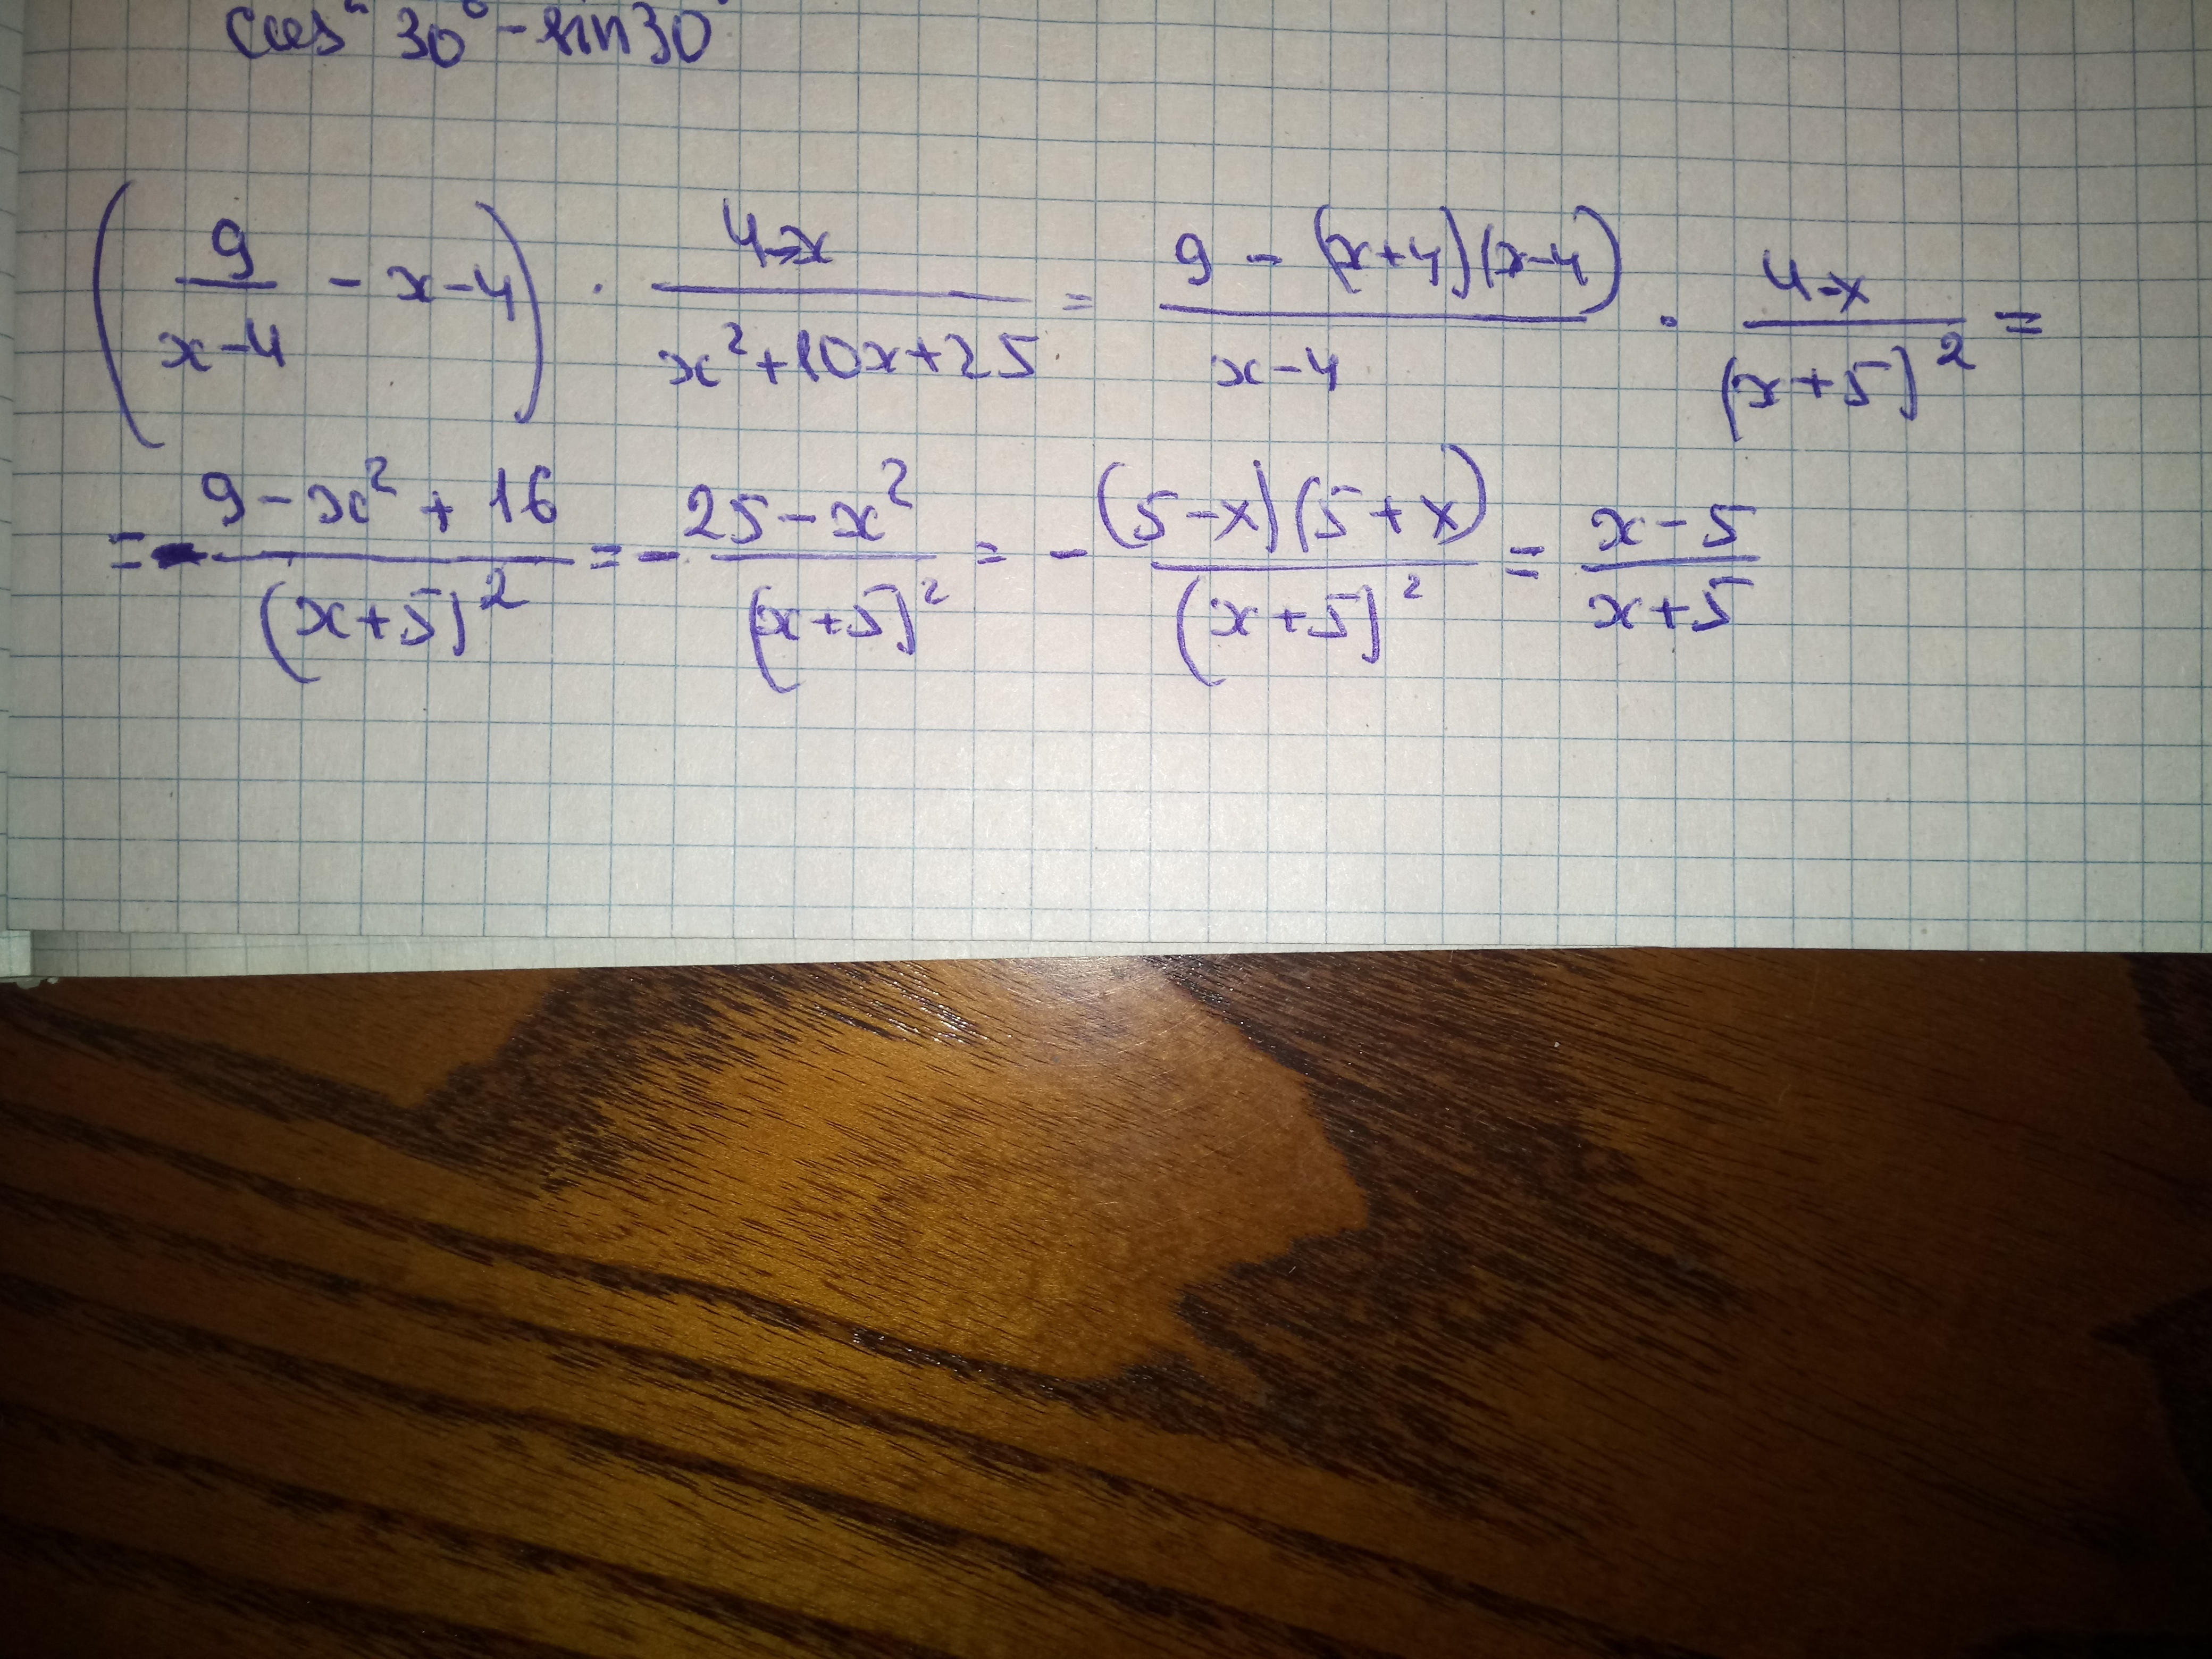 cos² 30° - sin30°
(9/(x-4) - x - 4) · (4-x)/(x²+10x+25) = (9 - (x+4)(x-4))/(x-4) · (4-x)/(x+5)² =
= - (9 - x² + 16)/(x+5)² = - (25 - x²)/(x+5)² = - ((5-x)(5+x))/(x+5)² = (x-5)/(x+5)